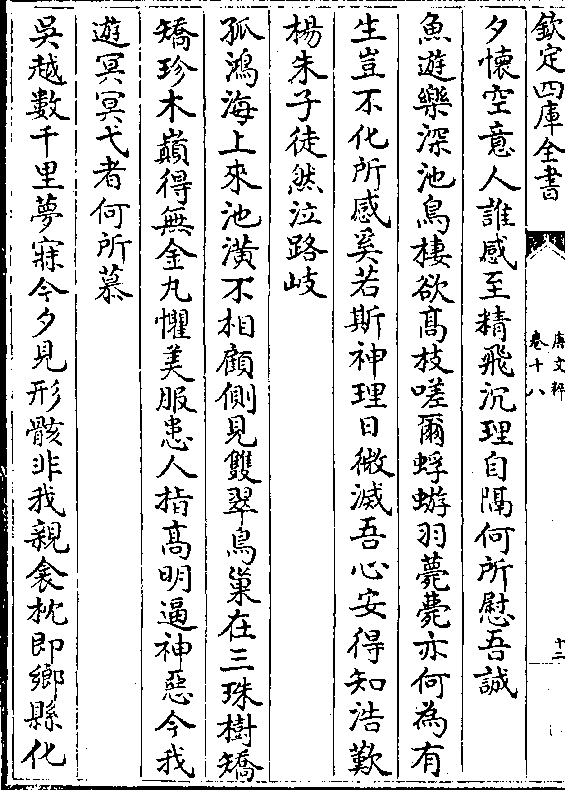 欽定四庫全書
唐文粹
卷十八
十二
夕懷空意人誰感至精飛沉理自隔何所慰吾誠
魚遊樂深池鳥棲欲髙枝嗟爾蜉蝣羽薨薨亦何為有
生豈不化所感奚若斯神理日微滅吾心安得知浩歎
楊朱子徒然泣路岐
孤鴻海上來池潢不相顧側見雙翠鳥巢在三珠樹矯
矯珍木巔得無金丸懼美服患人指髙明逼神惡今我
遊冥冥弋者何所慕
吳越數千里夢寐今夕見形骸非我親衾枕即鄉縣化